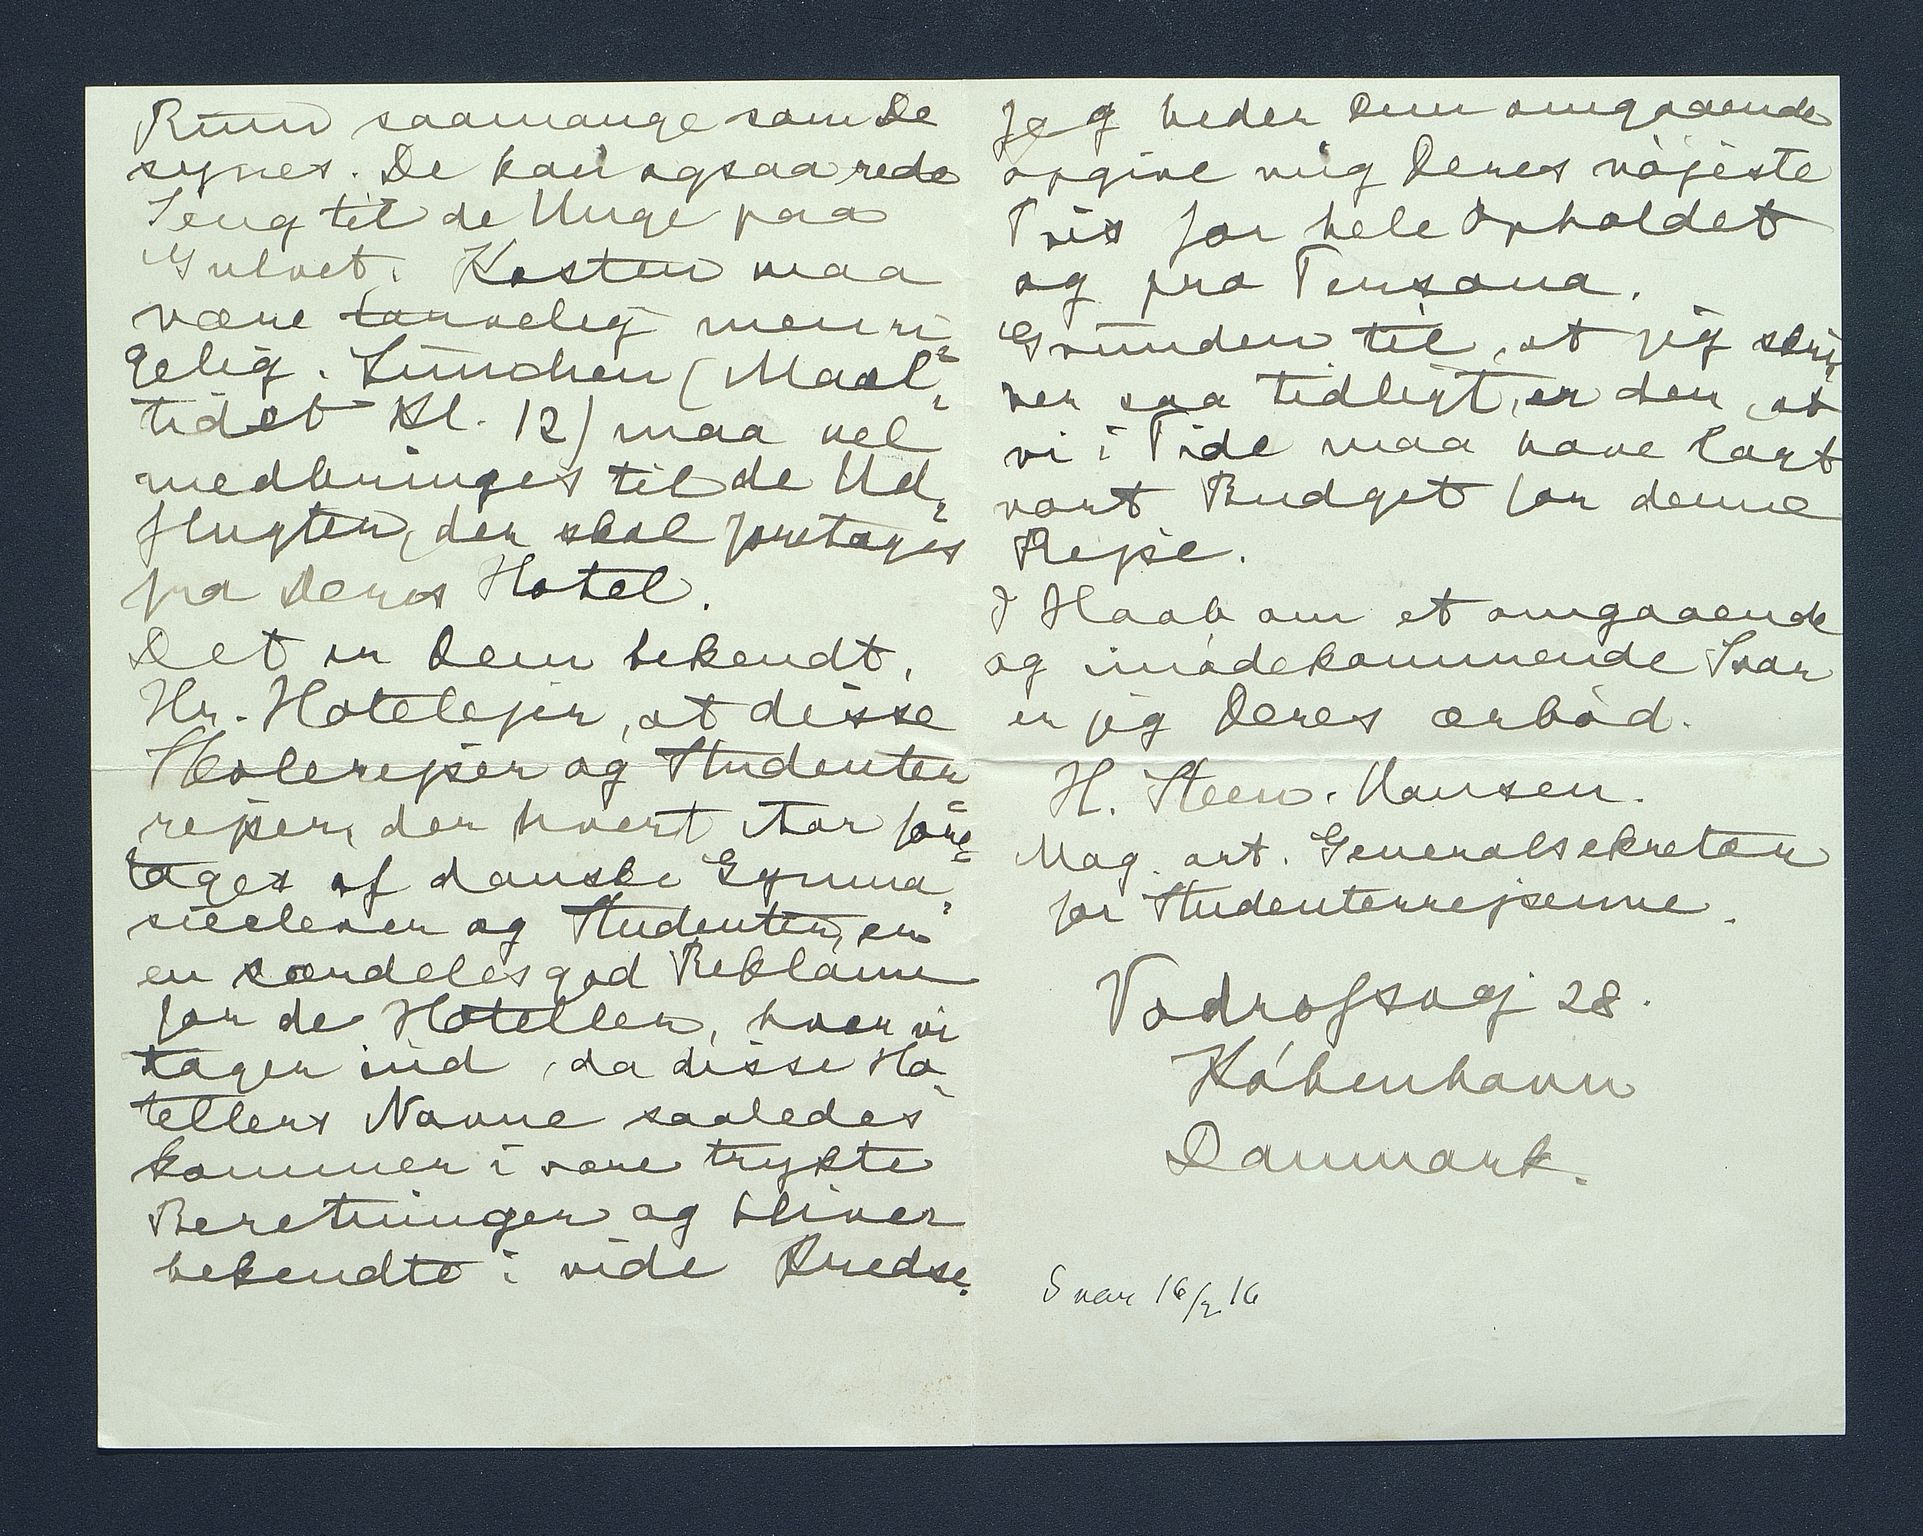 Rum saamange som De
synes. De kan ogsaa rede
Seng til de Unge paa
Gulvet. Kosten maa
være tarvelig men ri-
gelig. Lunchen (Maal-
tidet Kl. 12) maa vel
medbringes til de Ud-
flugter, der skal foretages
fra Deres Hotel.
Det er Dem bekendt,
Hr. Hotelejer, at disse
Skolerejser og Studenter
rejser, der hvert Aar fore-
tages af danske Gymna-
sieelever og Studenter, er
en særdeles god Reklame
for de Hoteller, hvor vi
tager ind, da disse Ho-
tellers Navne saaledes
kommer i vore trykte
Beretninger og bliver
bekendte i vide Kredse.
Jeg beder Dem omgaaende
opgive mig Deres nøjeste
Pris for hele Opholdet
og pro Persona.
Grunden til, at jeg skri-
ver saa tidligt, er den, at
vi i Tide maa have lagt
vort Budget for denne
Rejse.
I Haab om et omgaaende
og imødekommende Svar
er jeg Deres ærbød.
H. Steen-Hansen.
Mag. art. Generalsekretær
for Studenterrejserne.
Vodrofsvej 28.
København
Danmark.
Svar 16/2 16